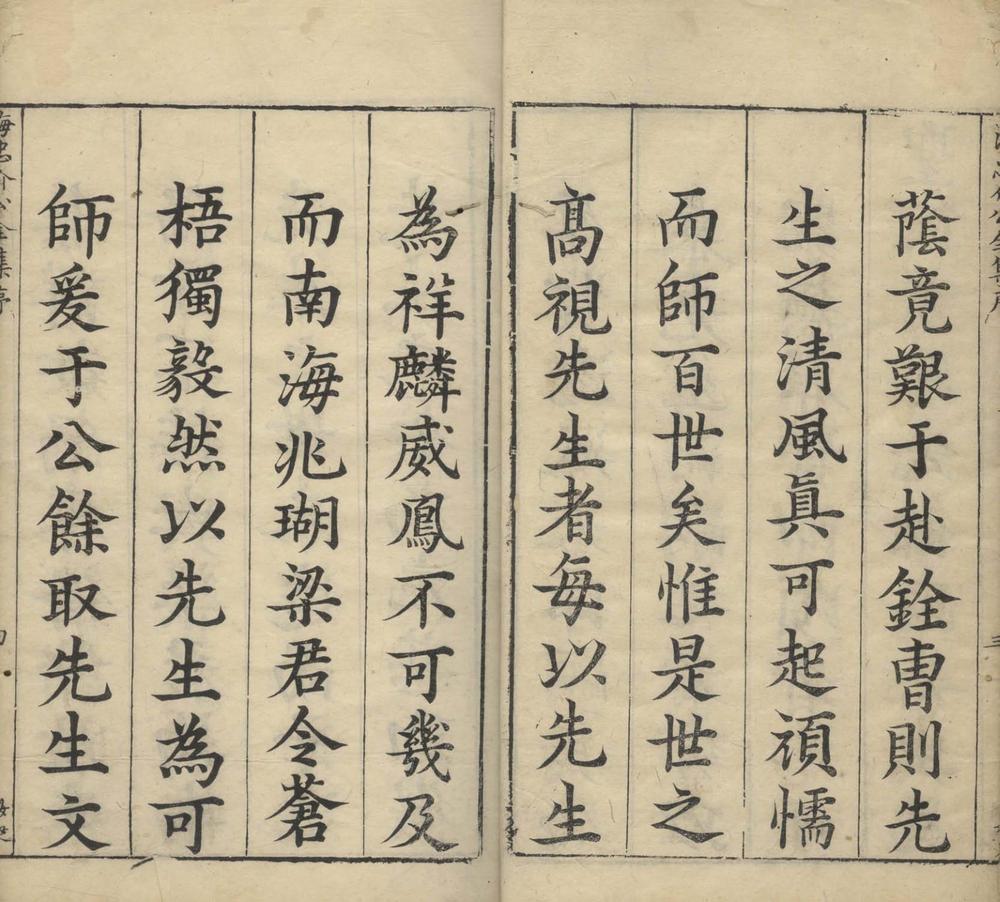 蔭竟艱于赴銓曹則先
生之清風真可起頑懦
而師百世矣惟是世之
高視先生者每以先生
為祥麟威鳳不可幾及
而南海兆瑚梁君令蒼
梧獨毅然以先生為可
師爰于公餘取先生文
海忠介公全集序